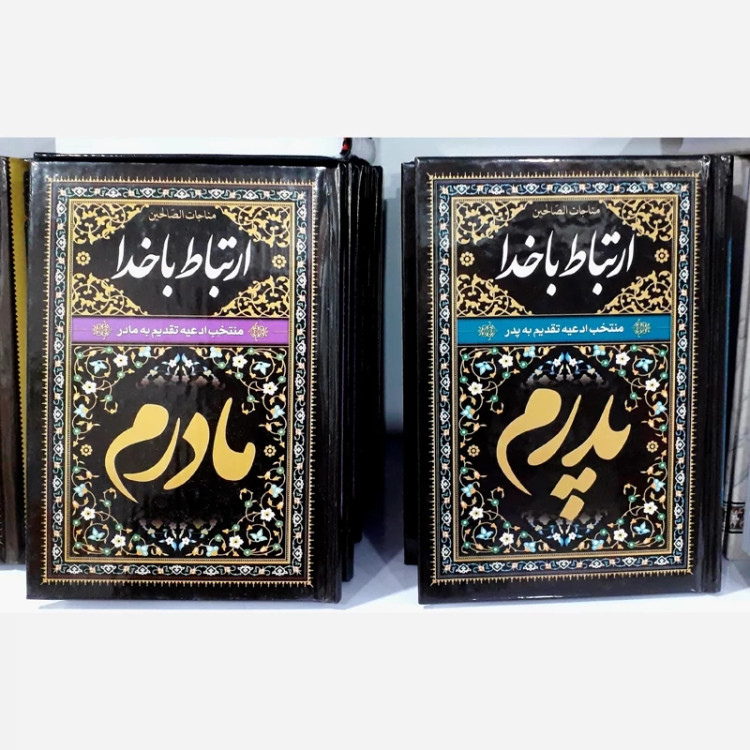 مناجات الصالحین
ارتباط با خدا
منتخب ادعیه تقدیم به مادر
مادرم
مناجات الصالحین
ارتباط با خدا
منتخب ادعیه تقدیم به پدر
پدرم